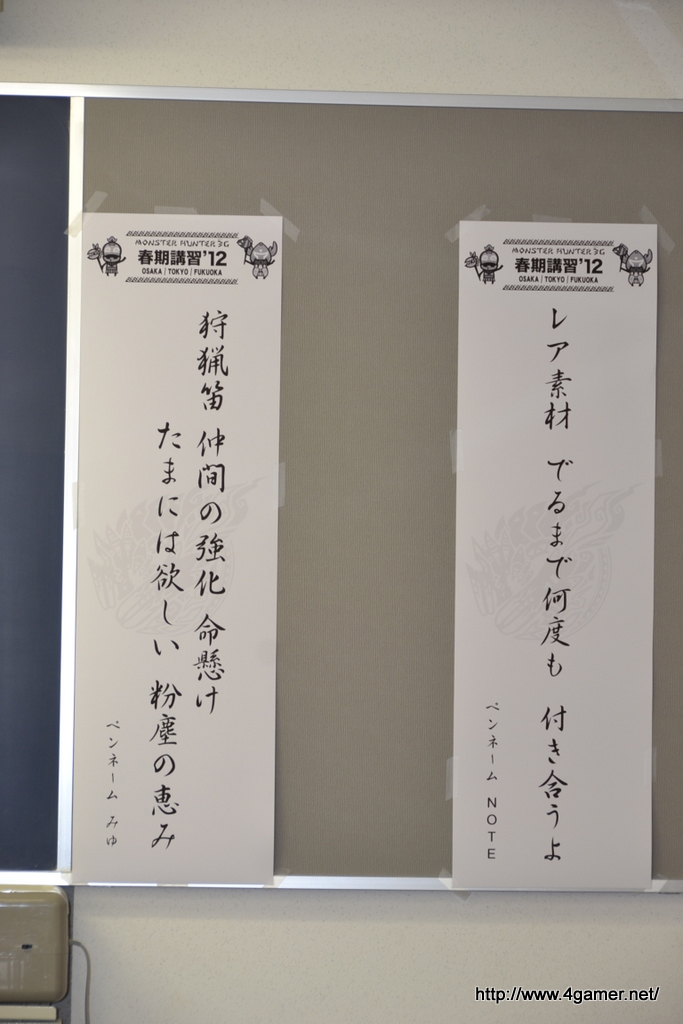 MONSTER HUNTER 3G
春期講習'12
OSAKA / TOKYO / FUKUOKA
狩猟笛 仲間の強化 命懸け
たまには欲しい 粉塵の恵み
ペンネーム みゆ
MONSTER HUNTER 3G
春期講習'12
OSAKA / TOKYO / FUKUOKA
レア素材 でるまで何度も 付き合うよ
ペンネーム NOTE
http://www.4gamer.net/